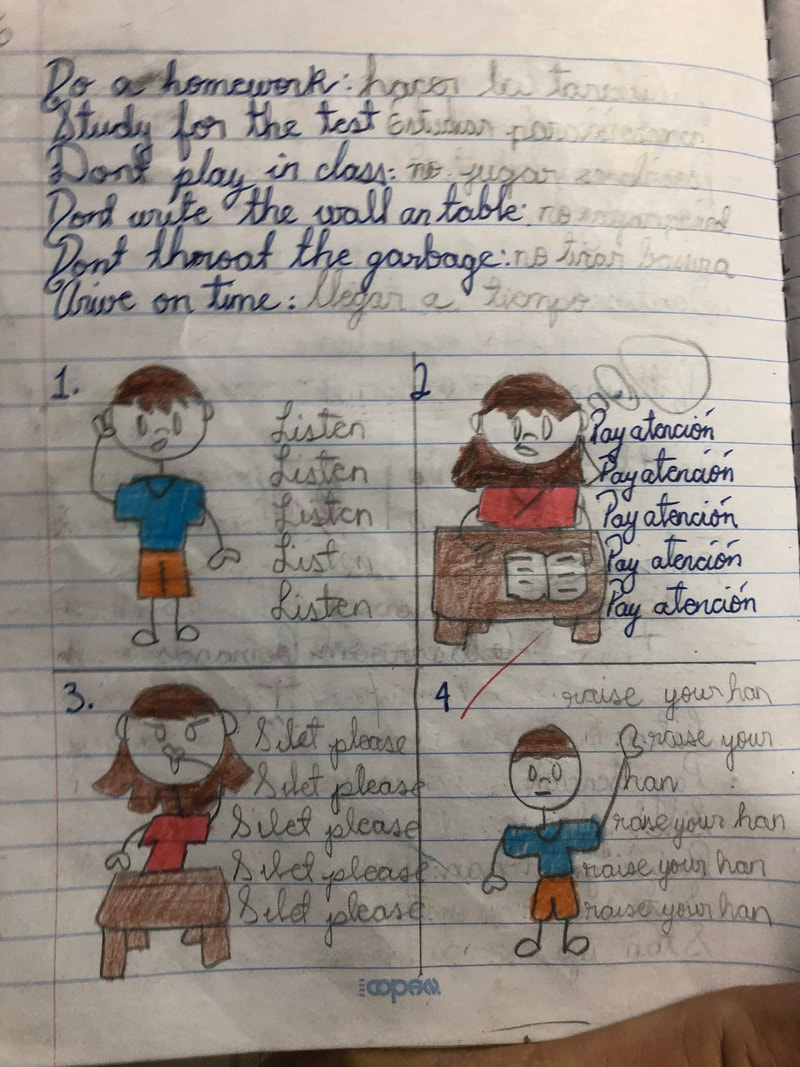 Do a homework: hacer la tarea
Study for the test Estudiar para
Dont play in class: no jugar en clases
Dont write the wall an table: no
Dont throat the garbage: no tirar basura
Urive on time: llegar a tiempo
1.
Listen
Listen
Listen
Listen
Listen
2
Pay atención
Pay atención
Pay atención
Pay atención
Pay atención
3.
Silet please
Silet please
Silet please
Silet please
Silet please
4
raise your han
raise your
han
raise your han
raise your han
raise your han